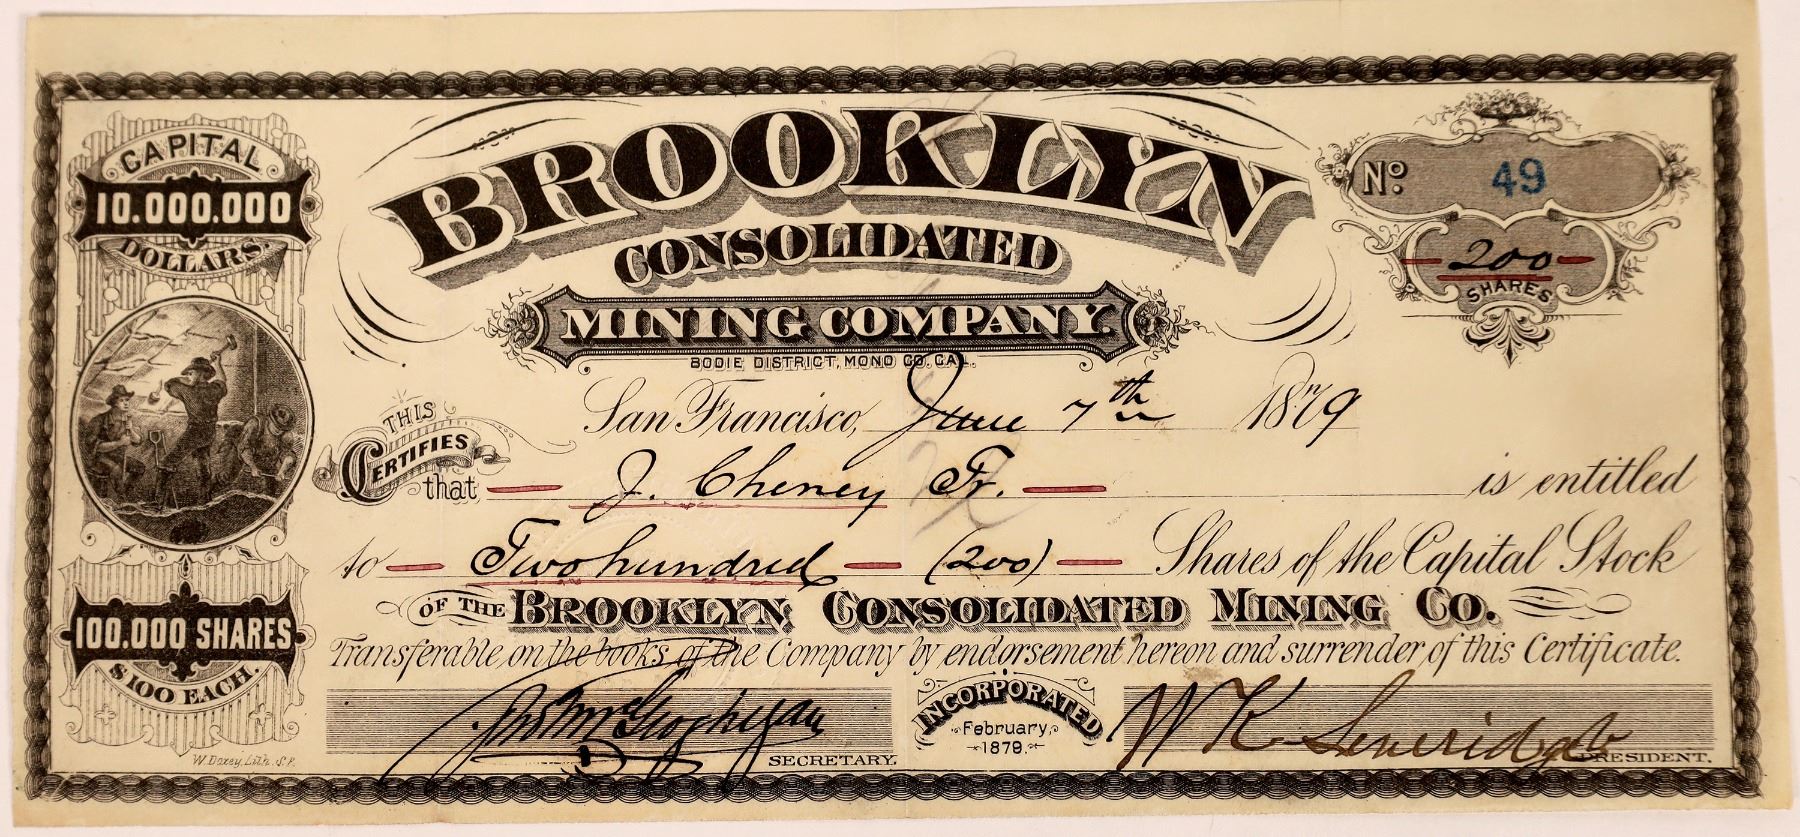 CAPITAL
10.000.000
DOLLARS.
BROOKLYN
CONSOLIDATED
MINING COMPANY.
BODIE DISTRICT, MONO CO. CAL.
No. 49
200
SHARES
San Francisco, June 7th 1879
THIS
CERTIFIES
that J. Cheney Tr. is entitled
to Two hundred (200) Shares of the Capital Stock
OF THE BROOKLYN CONSOLIDATED MINING CO.
Transferable on the books of the Company by endorsement hereon and surrender of this Certificate.
100.000 SHARES
$100 EACH.
INCORPORATED
February,
1879.
SECRETARY.
W K
PRESIDENT.
W. Doxey, Lith. S.F.